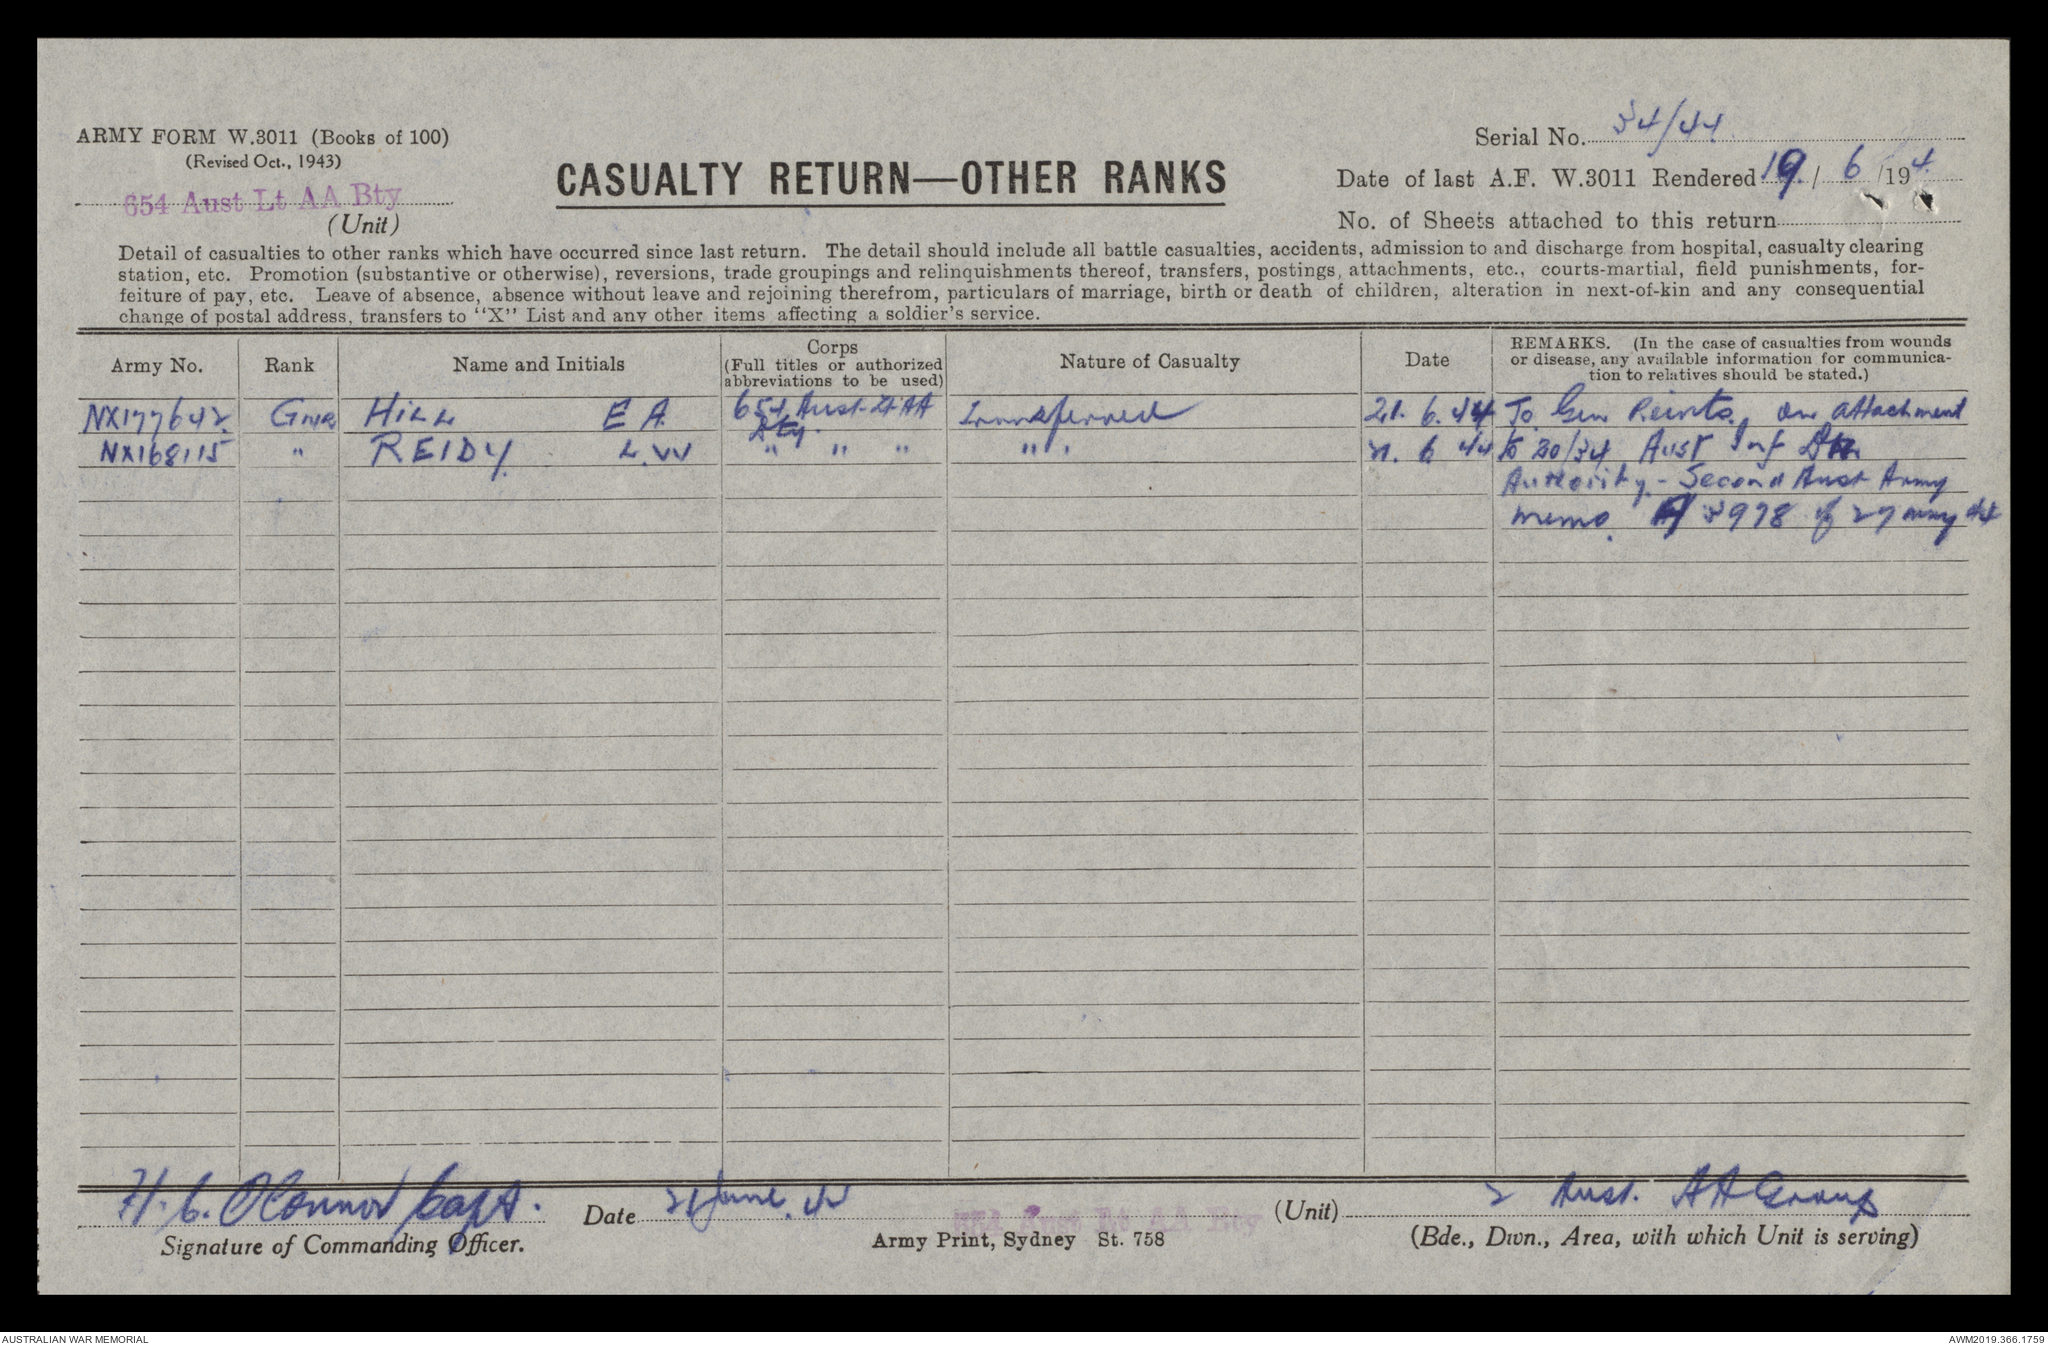 ARMY FORM W.3011 (Books of 100)
(Revised Oct., 1943)
654 Aust Lt AA Bty
(Unit)
CASUALTY RETURN—OTHER RANKS
Serial No. 34/44
Date of last A.F. W.3011 Rendered 19/6/194
No. of Sheets attached to this return
Detail of casualties to other ranks which have occurred since last return. The detail should include all battle casualties, accidents, admission to and discharge from hospital, casualty clearing
station, etc. Promotion (substantive or otherwise), reversions, trade groupings and relinquishments thereof, transfers, postings, attachments, etc., courts-martial, field punishments, for-
feiture of pay, etc. Leave of absence, absence without leave and rejoining therefrom, particulars of marriage, birth or death of children, alteration in next-of-kin and any consequential
change of postal address, transfers to "X" List and any other items affecting a soldier's service.
Army No. Rank Name and Initials Corps (Full titles or authorized abbreviations to be used) Nature of Casualty Date REMARKS. (In the case of casualties from wounds or disease, any available information for communica-tion to relatives should be stated.)
NX177642 GNR HILL E A 654 Aust Lt AA Bty Transferred 21. 6. 44 To Gen Reints, on attachment
NX168115 " REIDY L.W " " " " " 21. 6 44 to 30/34 Aust Inf Bn
Authority - Second Aust Army
Memo 3978 of 27 May 44
H. C. O'Connor Capt.
Signature of Commanding Officer.
Date 21 June. 44
654 Aust Lt AA Bty (Unit)
Army Print, Sydney St. 758
2 Aust. AA Group
(Bde., Divn., Area, with which Unit is serving)
AUSTRALIAN WAR MEMORIAL
AWM2019.366.1759